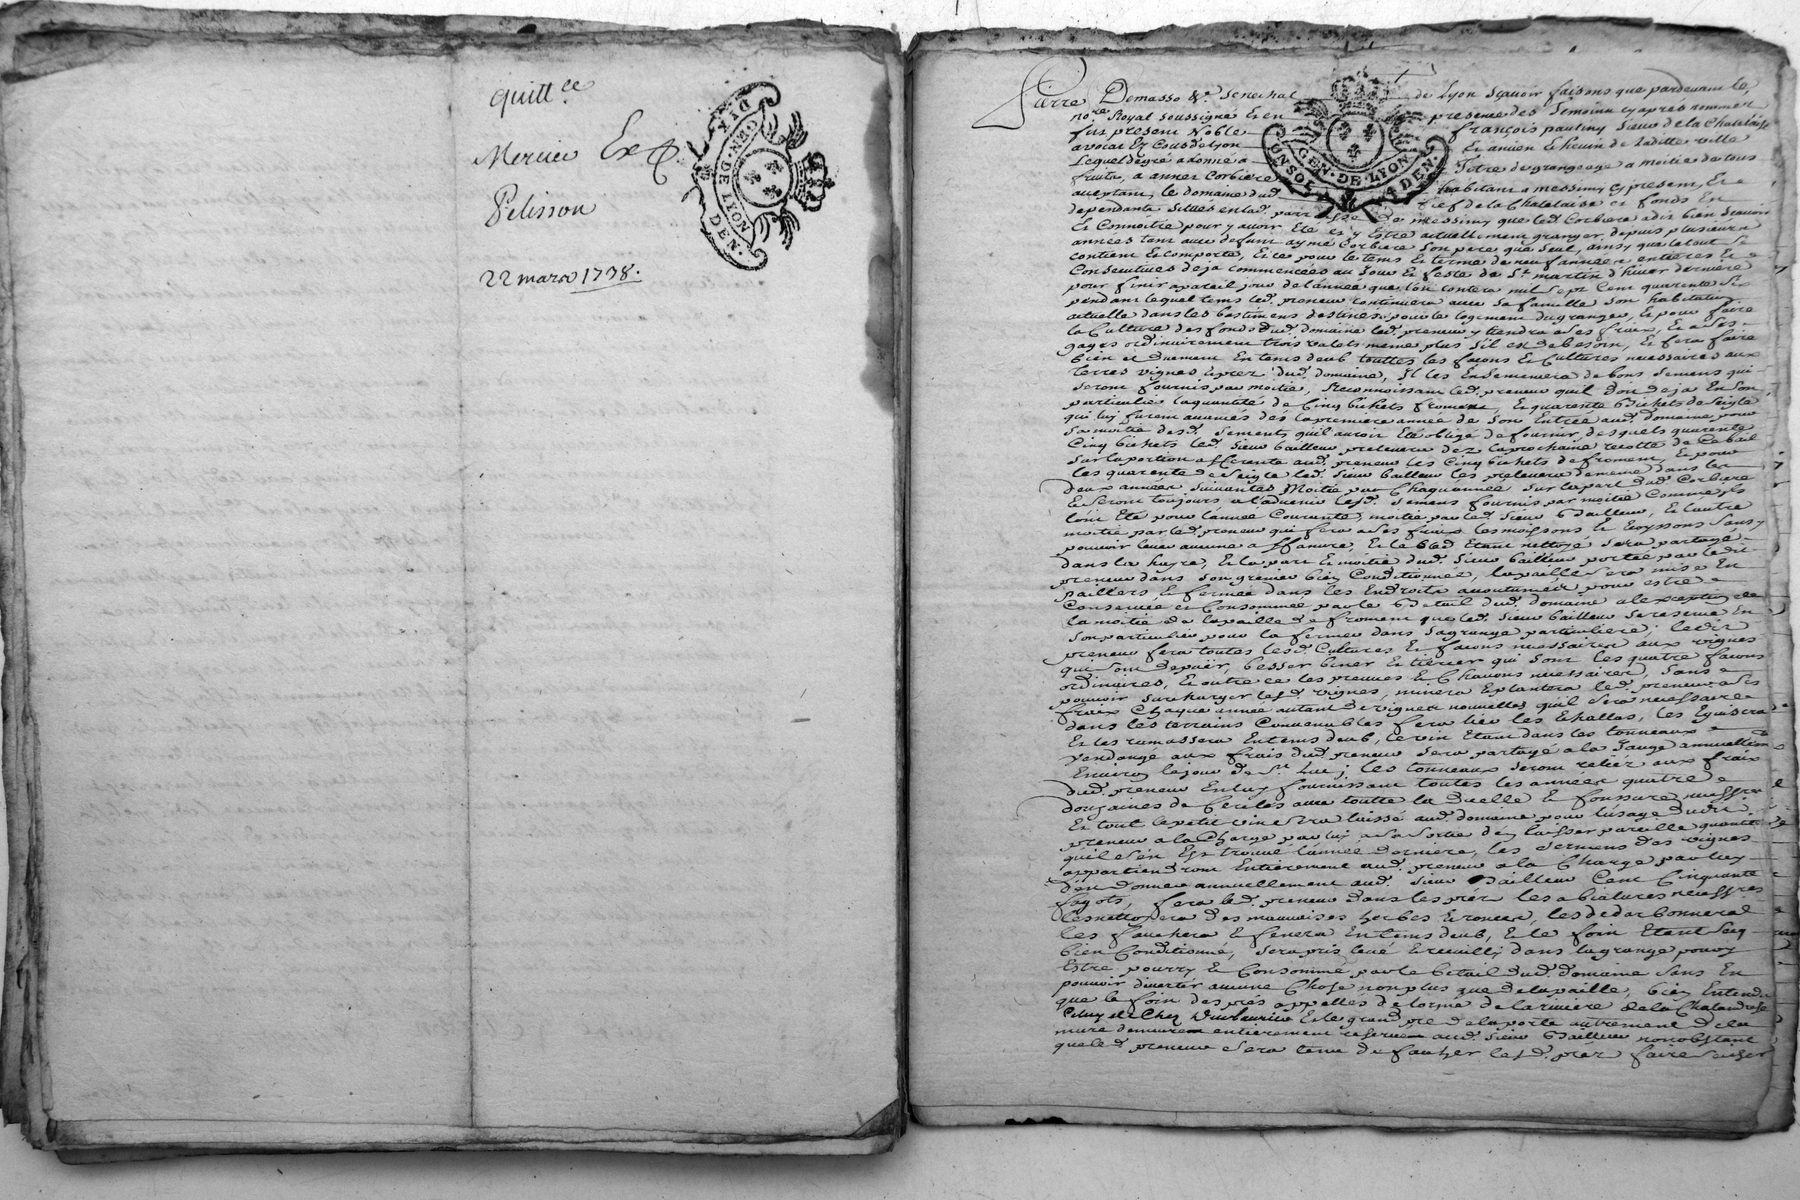 quitt.ce
Mercier Ex
Pelisson
22 mars 1738.
DIX
GEN. DE LYON
DEN.
Pierre Demasso &.a Senechal de Lyon Sçavoir faisons que pardevant le
no.re Royal soussigné Et en presence des Temoins cy apres nommés
fut present Noble françois pauliny Sieur de la Chatelaise
avocat Ez Cours de Lyon Et ancien Echevin de Ladite ville
Lequel degré a donné a Titre de grangeage a moitié de tous
fruits, a Corbiere habitant a messimy cy present, Et
aceptant, le domaine du d. fief de la Chatelaise et fonds En
dependants Situés en lad. parroisse de messimy que led. Corbiere a dit bien Sçavoir
Et Connoitre pour y avoir Eté Et y Estre actuellement granger depuis plusieurs
années tant avec defunt aymé Corbiere Son pere que Seul, ainsy que le tout Se
contient Et comporte, Et ce pour le tems Et terme de neuf années entieres Et
Consecutives deja commencées au Jour Et feste de S.t martin d'hiver derniere
pour finir a pareil jour de l'année que l'on contera mil Sept Cent quarente Six
pendant lequel tems led. preneur continuera avec Sa famille Son habitation
actuelle dans les bastimens destinés pour le logement du granger, Et pour faire
la Culture des fonds dud. domaine led. preneur y tiendra a Ses fraix, Et a Ses
gages ordinairement trois valets meme plus S'il est de besoin, Et fera faire
bien et duement En tems deub touttes les façons Et Cultures necessaires aux
terres vignes Et prez dud. domaine, Il les Ensemencera de bons Semens qui
Seront fournis par moitié, Reconnoissant led. preneur quil doit deja En Son
particulier la quantité de Cinq bichets froment, Et quarente Bichets de Seigle
qui luy furent avancés dès la premiere année de Son Entrée aud. domaine pour
Sa moitié des d. Sements quil auroit Eté obligé de fournir, desquels quarente
Cinq bichets led. Sieur bailleur prelevera dez la prochaine recolte
Sur la portion afferente aud. preneur les Cinq bichets de froment, Et pour
les quarente de Seigle led. Sieur bailleur les prelevera de meme dans les
deux années Suivantes Moitié par Chaque année Sur la part dud. Corbiere
Et Seront toujours a l'advenir lesd. Semens fournis par moitié Comme ils
l'ont Eté pour l'année Courante, moitié par led. Sieur Bailleur, Et l'autre
moitié par led. preneur qui fera a Ses fraix les moissons Sans
pouvoir lever aucune affanure, Et le bled Etant nettoyé Sera partagé
dans la Et la part Et moitié dud. Sieur bailleur portée par ledit
preneur dans Son grenier bien Conditionnée, la paille Sera mise En
paillers, Et fermée dans les Endroits acoutumés pour estre
Conservée et Consommée par le Betail dud. domaine a l'exception de
la moitié de la paille de froment que led. Sieur bailleur Se reserve En
Son particulier pour la fermer dans Sa grange particuliere; ledit
preneur fera toutes lesd. Cultures Et façons necessaires aux vignes
qui Sont besser biner Et tiercer qui Sont les quatre façons
ordinaires, Et outre ce les preuves Et Chavons necessaires, Sans
pouvoir Surcharger lesd. vignes, minera Et plantera led. preneur a Ses
fraix Chaque année autant de vignes nouvelles qu'il Sera necessaire
dans les terrains Convenables fera lier les Echallas, les Eguisera
Et les ramassera En tems deub, le vin Etant dans les tonneaux
vendangé aux frais dud. preneur Sera partagé a la Jauge annuellement
Environ le jour de S.t Luc, les tonneaux Seront reliez aux fraix
dud. preneur En luy fournissant toutes les années quatre
douzaines de Cercles avec toutte la Et fonssure
Et tout le petit vin Sera laissé aud. domaine pour l'usage dudit
preneur a la Charge par luy a Sa Sortie d'en laisser pareille quantité
qu'il S'en Est trouvé l'année derniere, les Sermens des vignes
appartiendront Entierement aud. preneur a la Charge par luy
d'en donner annuellement aud. Sieur Bailleur Cent Cinquante
fagots, fera led. preneur dans les prés les necess.res
les nettoyera des mauvaises herbes Et ronces, les dedarbonnera
les fauchera Et fenera En tems deub, Et le foin Etant Secq
bien Conditionné, Sera pris levé Et recuilly dans la grange pour y
Estre pourry Et Consommé par le betail dud. domaine Sans En
pouvoir divertir aucune Chose non plus que de la paille, bien Entendu
que le foin des prés appellés de lorme de la riviere de la Chatandrose
Celuy de Chez Et le grand pré de la porte autrement de la
mure demeure entierement reservé aud. Sieur Bailleur nonobstant
que led. preneur Sera tenu de faucher lesd. prez faire Seicher
GEN. DE LYON